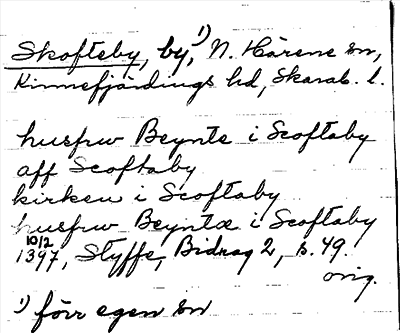 Skofteby, by,¹⁾ N. Härene sn,
Kinnefjärdings hd, Skarab. l.
husfrw Beynte i Scoftaby
aff Scoftaby
kirken i Scoftaby
husfrw Beyntæ i Scoftaby
10/2
1397, Styffe, Bidrag 2, s. 49.
orig.
¹⁾ förr egen sn